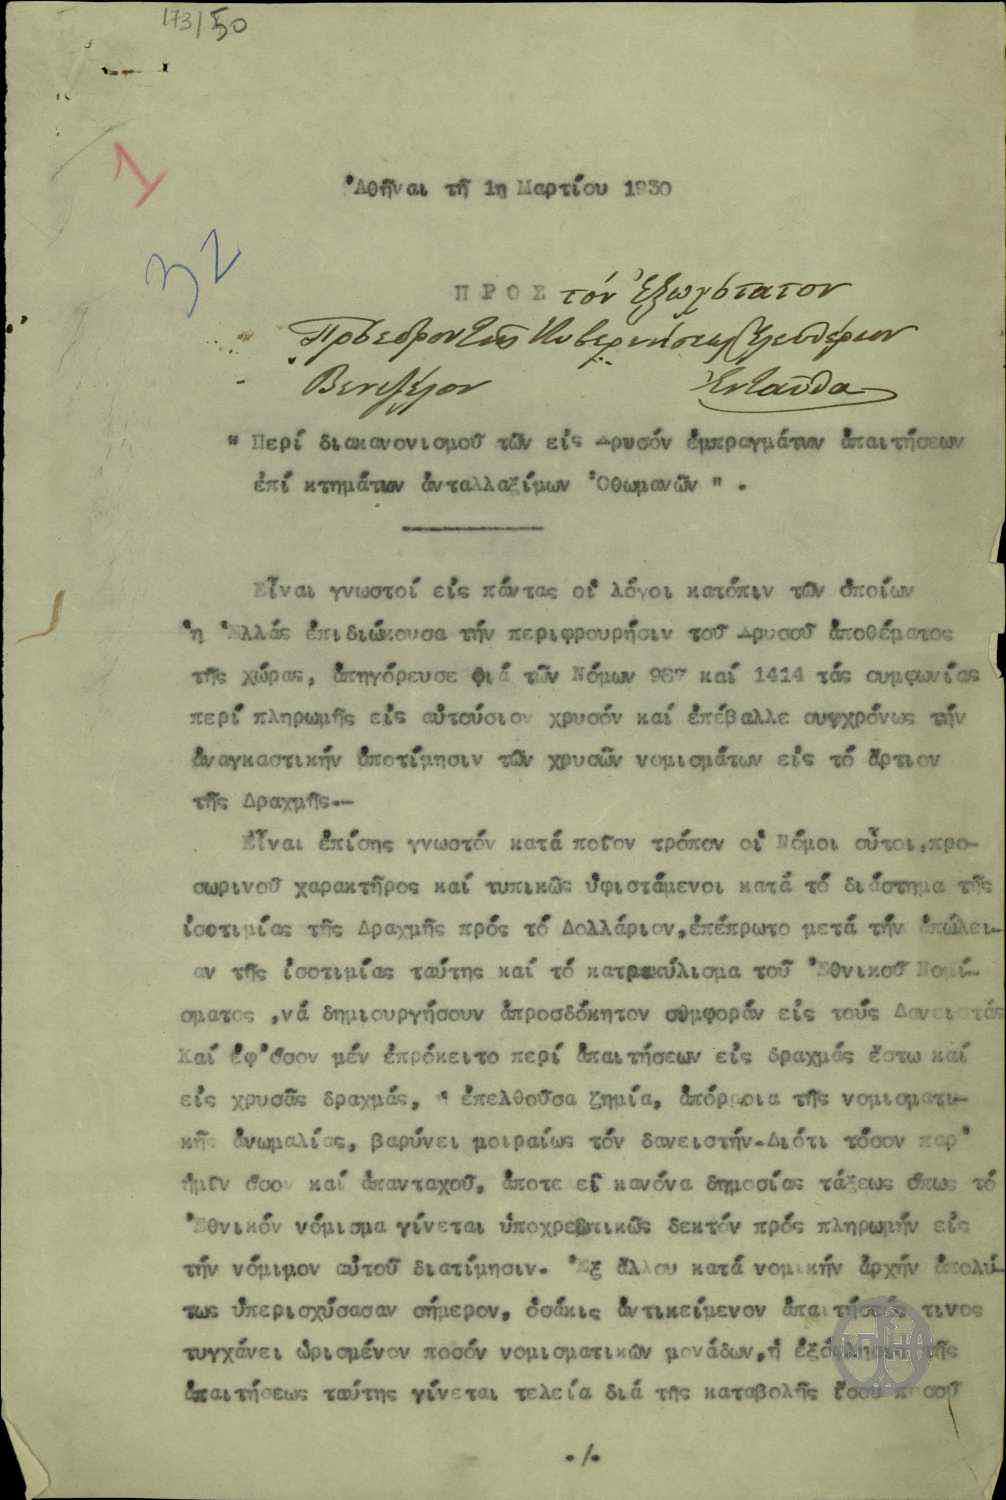 173/50
1
32
Ἀθῆναι τῇ 1ῃ Μαρτίου 1930
ΠΡΟΣ τόν Ἐξοχώτατον
Πρόεδρον τῆς Κυβερνήσεως Ἐλευθέριον
Βενιζέλον Ἐνταῦθα
" Περί διακανονισμοῦ τῶν εἰς χρυσόν ἐμπραγμάτων ἀπαιτήσεων
ἐπί κτημάτων ἀνταλλαξίμων Ὀθωμανῶν " .
Εἶναι γνωστοί εἰς πάντας οἱ λόγοι κατόπιν τῶν ὁποίων
ἡ Ἑλλάς ἐπιδιώκουσα τήν περιφρούρησιν τοῦ χρυσοῦ ἀποθέματος
τῆς χώρας, ἀπηγόρευσε διά τῶν Νόμων 987 καί 1414 τάς συμφωνίας
περί πληρωμῆς εἰς αὐτούσιον χρυσόν καί ἐπέβαλλε συγχρόνως τήν
ἀναγκαστικήν ἀποτίμησιν τῶν χρυσῶν νομισμάτων εἰς τό ἄρτιον
τῆς Δραχμῆς.-
Εἶναι ἐπίσης γνωστόν κατά ποῖον τρόπον οἱ Νόμοι οὗτοι,προ-
σωρινοῦ χαρακτῆρος καί τυπικῶς ὑφιστάμενοι κατά τό διάστημα τῆς
ἰσοτιμίας τῆς Δραχμῆς πρός τό Δολλάριον,ἐπέπρωτο μετά τήν ἀπώλει-
αν τῆς ἰσοτιμίας ταύτης καί τό κατρακύλισμα τοῦ Ἐθνικοῦ Νομί-
σματος ,νά δημιουργήσουν ἀπροσδόκητον συμφοράν εἰς τούς Δανειστάς
Καί ἐφ'ὅσον μέν ἐπρόκειτο περί ἀπαιτήσεων εἰς δραχμάς ἔστω καί
εἰς χρυσᾶς δραχμάς, ἡ ἐπελθοῦσα ζημία, ἀπόρροια τῆς νομισματι-
κῆς ἀνωμαλίας, βαρύνει μοιραίως τόν δανειστήν.Διότι τόσον παρ'
ἡμῖν ὅσον καί ἁπανταχοῦ, ἀποτελεῖ κανόνα δημοσίας τάξεως ὅπως τό
Ἐθνικόν νόμισμα γίνεται ὑποχρεωτικῶς δεκτόν πρός πληρωμήν εἰς
τήν νόμιμον αὐτοῦ διατίμησιν. Ἐξ ἄλλου κατά νομικήν ἀρχήν ἀπολύ-
τως ὑπερισχύσασαν σήμερον, ὁσάκις ἀντικείμενον ἀπαιτήσεώς τινος
τυγχάνει ὡρισμένον ποσόν νομισματικῶν μονάδων,ἡ ἐξόφλησις τῆς
ἀπαιτήσεως ταύτης γίνεται τελεία διά τῆς καταβολῆς ἴσου ποσοῦ
./.